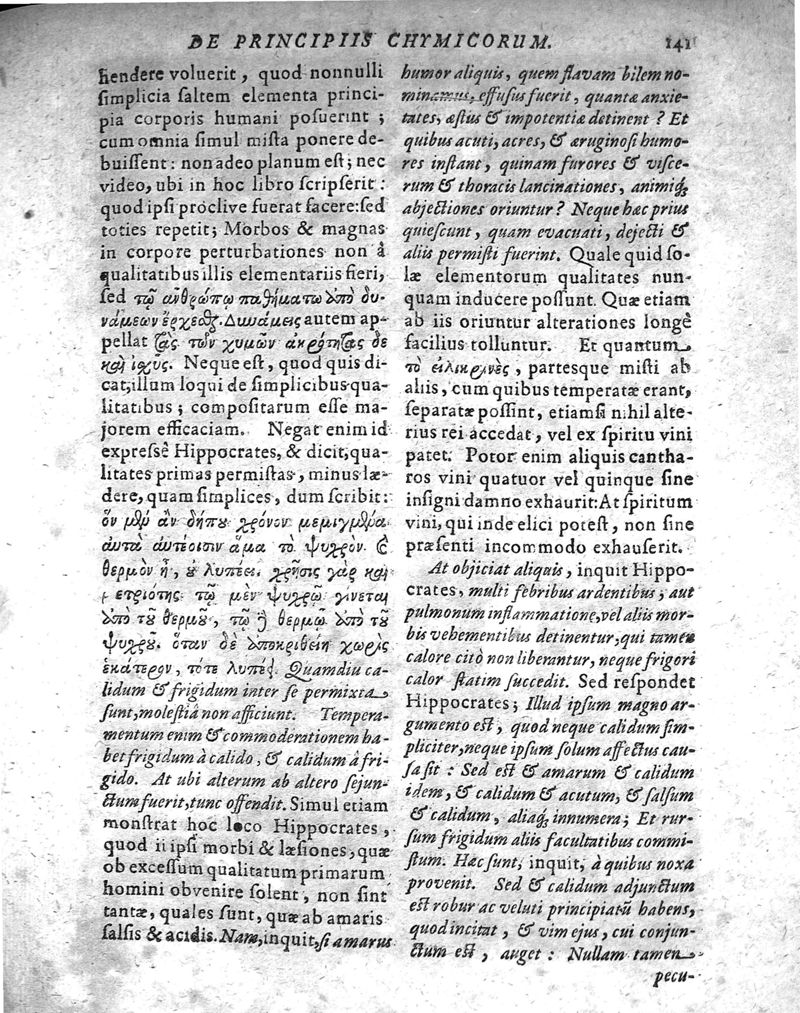 DE PRINCIPIIS CHYMICORUM. 141
hendere voluerit, quod nonnulli
ſimplicia ſaltem elementa princi-
pia corporis humani poſuerint;
cum omnia ſimul miſta ponere de-
buiſſent: non adeo planum eſt; nec
video, ubi in hoc libro ſcripſerit:
quod ipſi proclive fuerat facere: ſed
toties repetit; Morbos & magnas
in corpore perturbationes non â
qualitatibus illis elementariis fieri,
ſed τῷ ἀνθρώπῳ παθήματα ἀπὸ δυ-
νάμεων ἔρχεσθ. Δυνάμεις autem ap-
pellat τὰς τῶν χυμῶν ἀκρότητας δὲ
καὶ ἰσχὺς. Neque eſt, quod quis di-
cat; illum loqui de ſimplicibus qua-
litatibus; compoſitarum eſſe ma-
jorem efficaciam. Negat enim id
expreſſê Hippocrates, & dicit, qua-
litates primas permiſtas, minus læ-
dere, quam ſimplices, dum ſcribit:
ὃν μὲν ἂν δήπου χρόνον μεμιγμένα
αὐτὰ αὑτέοισιν ἅμα τὸ ψυχρὸν ϗ
θερμὸν ᾖ, ὀ λυπέει. χρῆσις γὰρ καὶ
ετριότης τῷ μὲν ψυχρῷ γίνεται
ἀπὸ τοῦ θερμοῦ, τῷ δὲ θερμῷ ἀπὸ τοῦ
ψυχροῦ. ὅταν δὲ ἀποκριθείη χωρὶς
ἑκάτερον, τότε λυπέει. Quamdiu ca-
lidum & frigidum inter ſe permixta
ſunt, moleſtiâ non afficiunt. Tempera-
mentum enim & commoderationem ha-
bet frigidum à calido, & calidum â fri-
gido. At ubi alterum ab altero ſejun-
ctum fuerit, tunc offendit. Simul etiam
monſtrat hoc loco Hippocrates,
quod ii ipſi morbi & læſiones, quæ
ob exceſſum qualitatum primarum
homini obvenire ſolent, non ſint
tantæ, quales ſunt, quæ ab amaris
ſalſis & acidis. Nam, inquit, ſi amarus
humor aliquis, quem flavam bilem no-
minamus, effuſus fuerit, quantæ anxie-
tates, æſtus & impotentiæ detinent? Et
quibus acuti, acres, & æruginoſi humo-
res inſtant, quinam furores & viſce-
rum & thoracis lancinationes, animiq́;
abjectiones oriuntur? Neque hæc prius
quieſcunt, quam evacuati, dejecti &
aliis permiſti fuerint. Quale quid ſo-
læ elementorum qualitates nun-
quam inducere poſſunt. Quæ etiam
ab iis oriuntur alterationes longê
facilius tolluntur. Et quantum
τὸ εἰλικρινὲς, partesque miſti ab
aliis, cum quibus temperatæ erant,
ſeparatæ poſſint, etiamſi nihil alte-
rius rei accedat, vel ex ſpiritu vini
patet. Potor enim aliquis cantha-
ros vini quatuor vel quinque ſine
inſigni damno exhaurit: At ſpiritum
vini, qui inde elici poteſt, non ſine
præſenti incommodo exhauſerit.
At objiciat aliquis, inquit Hippo-
crates, multi febribus ardentibus, aut
pulmonum inflammatione, vel aliis mor-
bis vehementibus detinentur, qui tamen
calore citò non liberantur, neque frigori
calor ſtatim ſuccedit. Sed reſpondet
Hippocrates; Illud ipſum magno ar-
gumento eſt, quod neque calidum ſim-
pliciter, neque ipſum ſolum affectus cau-
ſa ſit: Sed eſt & amarum & calidum
idem, & calidum & acutum, & ſalſum
& calidum, aliaq́; innumera; Et rur-
ſum frigidum aliis facultatibus commi-
ſtum. Hæc ſunt, inquit, à quibus noxa
provenit. Sed & calidum adjunctum
eſt robur ac veluti principiatũ habens,
quod incitat, & vim ejus, cui conjun-
ctum eſt, auget: Nullam tamen
pecu-